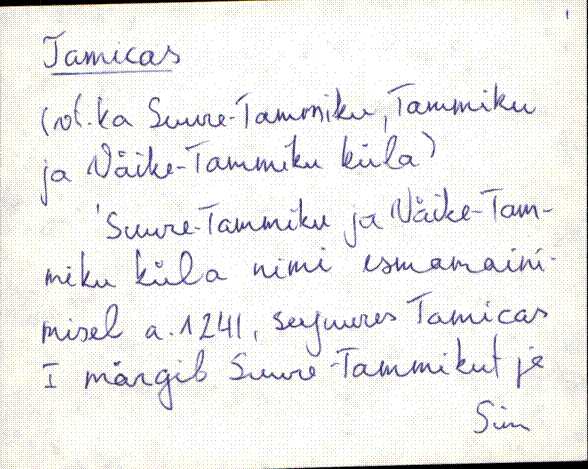 Tamicas
(vt. ka Suure-Tammiku, Tammiku
ja Väike-Tammiku küla)
'Suure-Tammiku ja Väike-Tam-
miku küla nimi esmamaini-
misel a. 1241, sejuures Tamicas
I märgib Suure-Tammikut ja